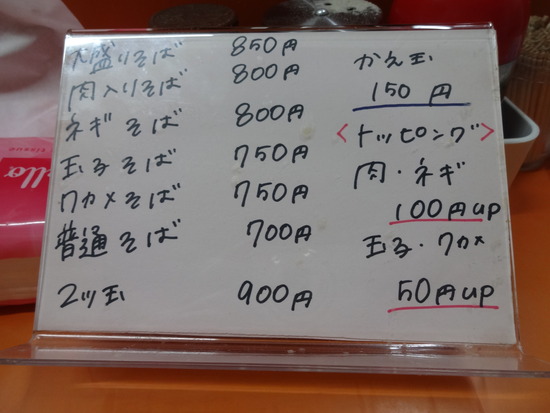 大盛りそば 850円
肉入りそば 800円
ネギそば 800円
玉子そば 750円
ワカメそば 750円
普通そば 700円
2ツ玉 900円
かえ玉
150円
<トッピング>
肉・ネギ
100円up
玉子・ワカメ
50円up